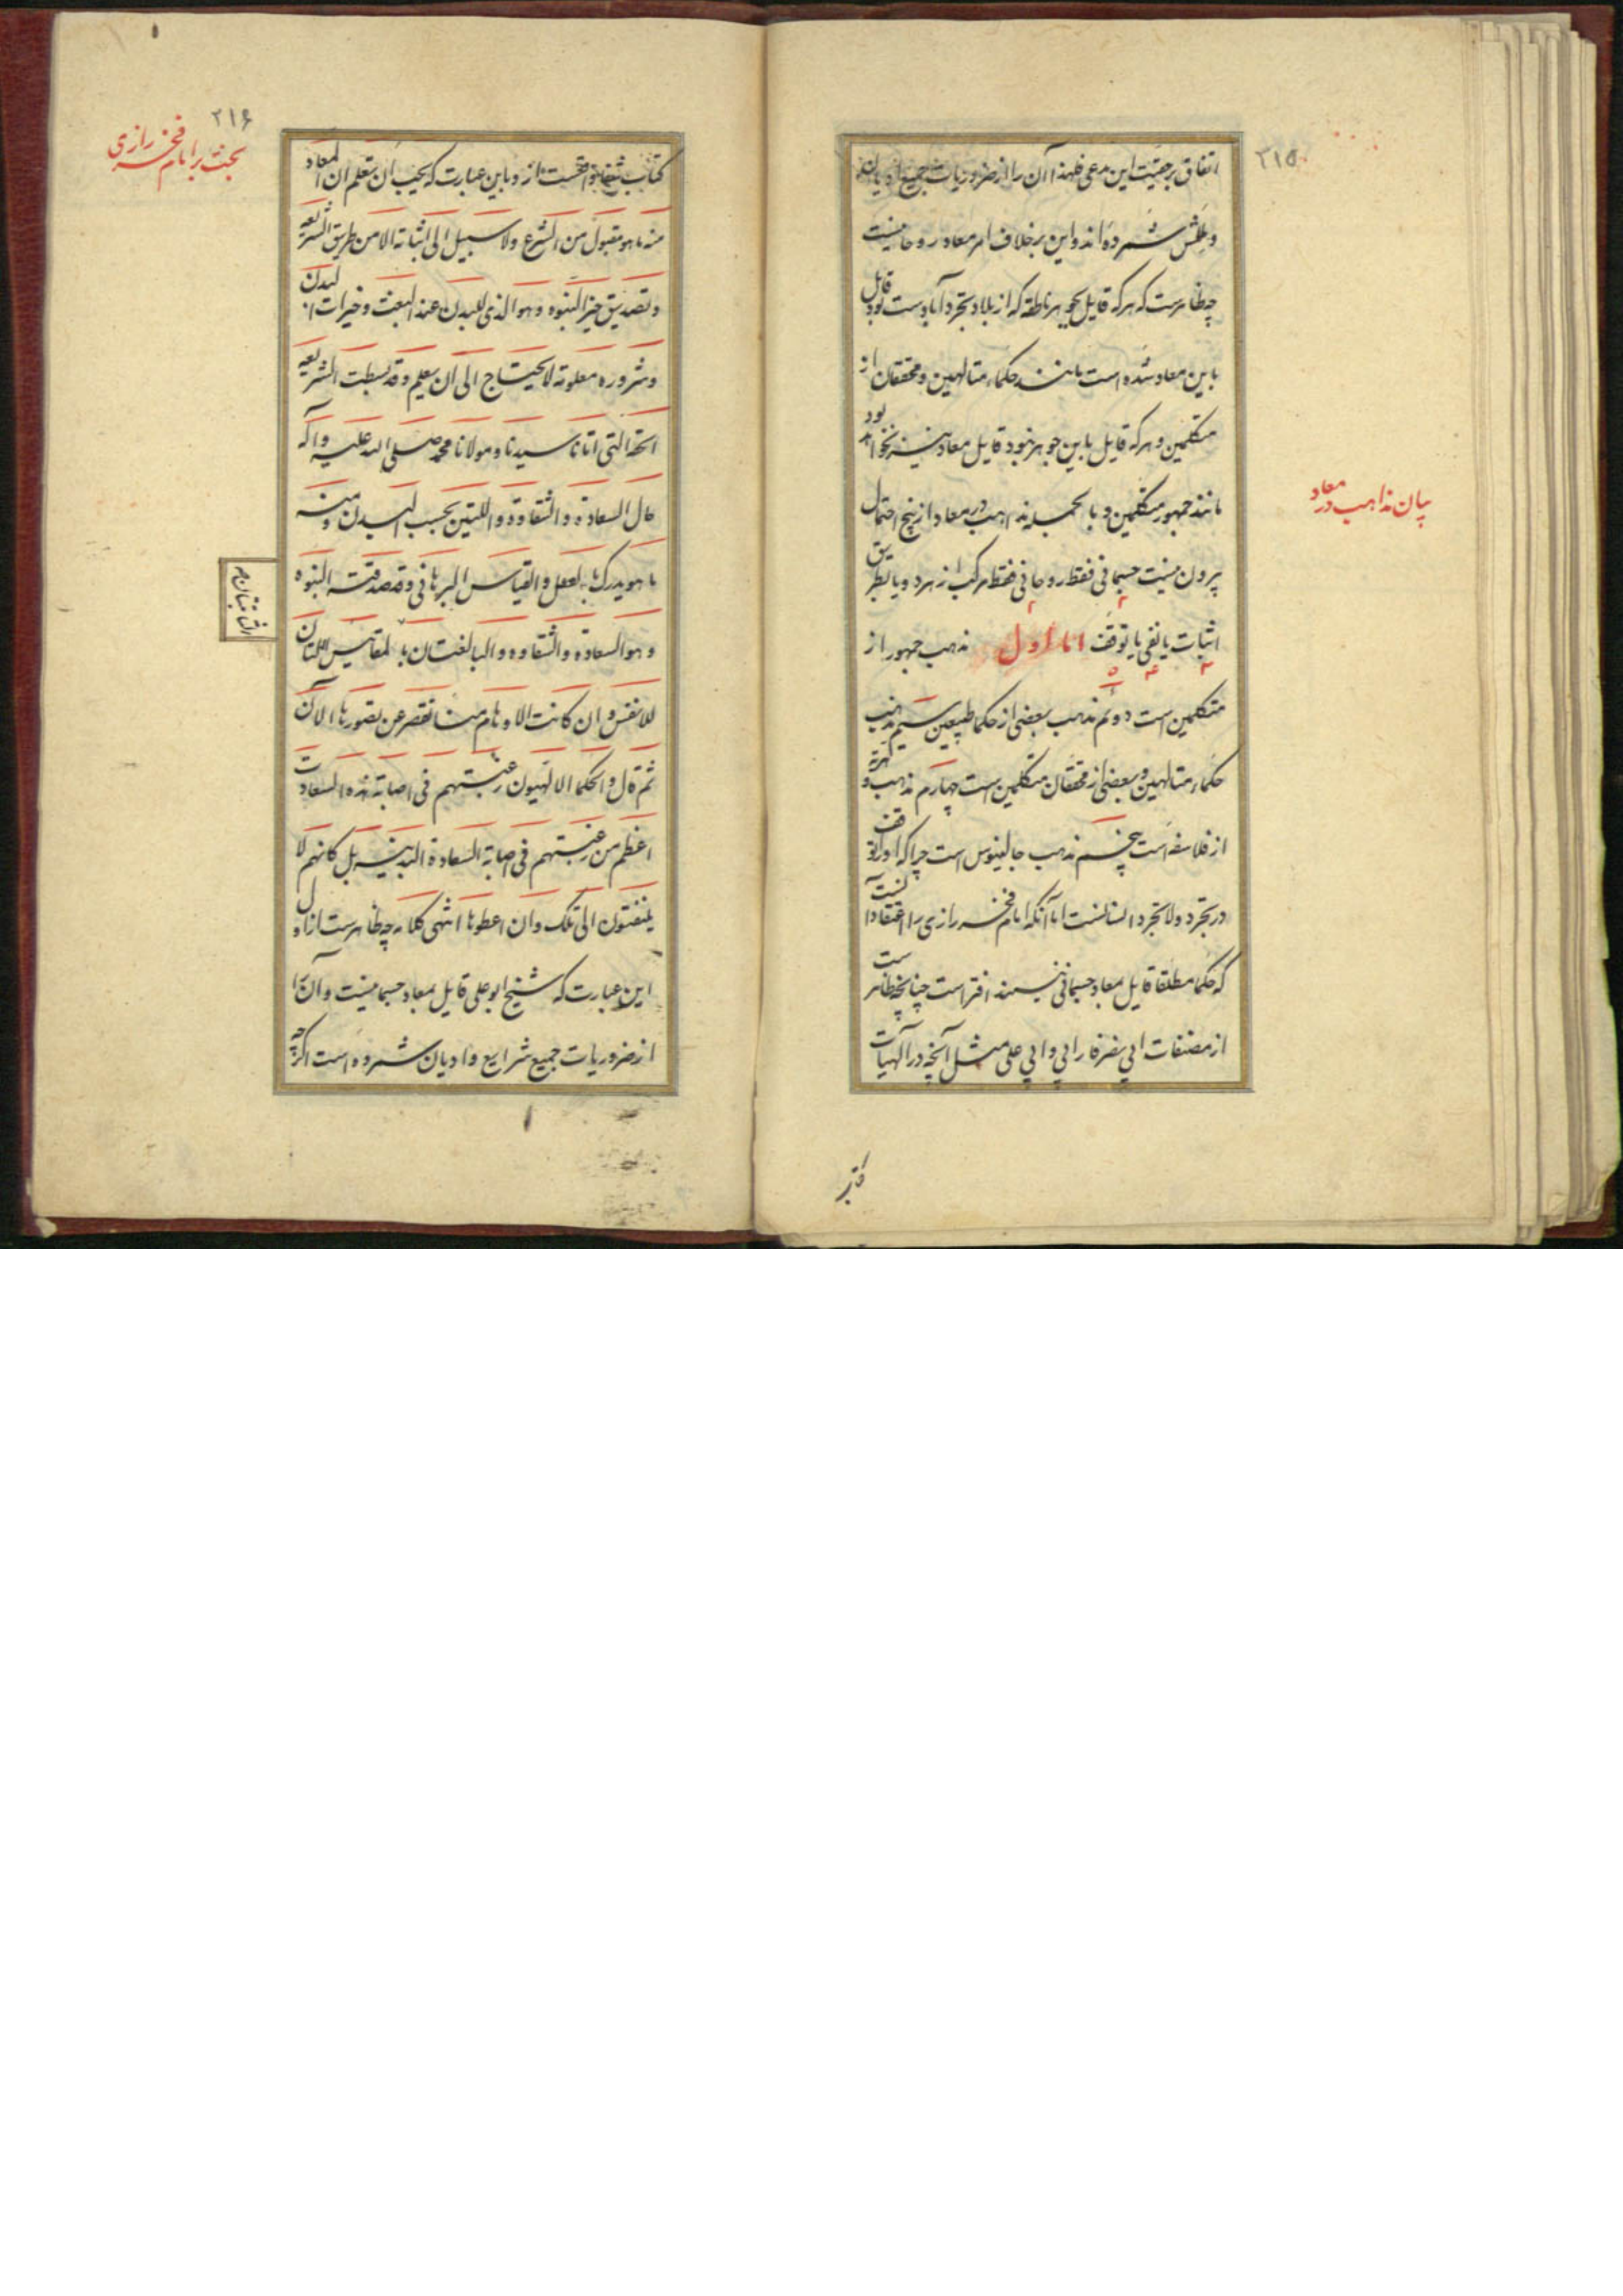 ۲۱۵
اتفاق بر حقیت این مدعی فلهذا آن را از ضروریات جمیع ادیان
و شمرده‌اند و این برخلاف امر معاد روحانیست
چه ظاهرست که هرکه قایل بجوهر ناطقه که از بلاد تجرد آبادست بود قایل
باین معاد شده است مانند حکماء متالهین و محققان از
متکلمین و هرکه قایل باین جوهر نبود قایل معاد نیز نخواهد بود
مانند جمهور متکلمین و بالجمله مذاهب در معاد از پنج احتمال
بیرون نیست جسمانی فقط روحانی فقط مرکب از هر دو یا بطریق
اثبات یا نفی یا توقف اما اول مذهب جمهور از
متکلمین است دوئم مذهب بعضی از حکما طبیعین سیم مذهب
حکماء متالهین و بعضی از محققان متکلمین است چهارم مذهب
از فلاسفه است پنجم مذهب جالینوس است چرا که او را توقف
در تجرد و لا تجرد انسانست اما آنکه امام فخر رازی را اعتقاد آنست
که حکما مطلقا قایل معاد جسمانی نیستند افتراست چنانچه ظاهرست
از مصنفات ابی نصر فارابی و ابی علی مثل آنچه در آلهیات
بیان مذاهب در معاد
۲۱۶
بحث بر امام فخر رازی
کتاب شفا از و باین عبارت که یجب ان تعلم ان المعاد
منه ما هو مقبول من الشرع ولا سبیل الی اثباته الا من طریق الشریعه
و تصدیق خبر النبوه وهو الذی للبدن عند البعث و خیرات البدن
و شروره معلومة لا یحتاج الی ان یعلم وقد بسطت الشریعه
الحقة التی اتانا سیدنا و مولانا محمد صلی الله علیه و آله
حال السعادة و الشقاوة و اللتین بحسب البدن و منه
ما هو یدرک بالعقل و القیاس البرهانی و قد صدقته النبوه
و هو السعادة و الشقاوه و البالغتان بالمقاییس اللتان
للانفس و ان کانت الاوهام منا تقصر عن تصورها الان
ثم قال و الحکما الالهیون رغبتهم فی اصابة هذه السعادت
اعظم من رغبتهم فی اصابة السعادة البدنیه بل کانهم لا
یلتفتون الی تلک و ان اعطوها انتهی کلامه چه ظاهرست از اول
این عبارت که شیخ ابو علی قایل بمعاد جسمانیست و آن را
از ضروریات جمیع شرایع و ادیان شمرده است اگرچه